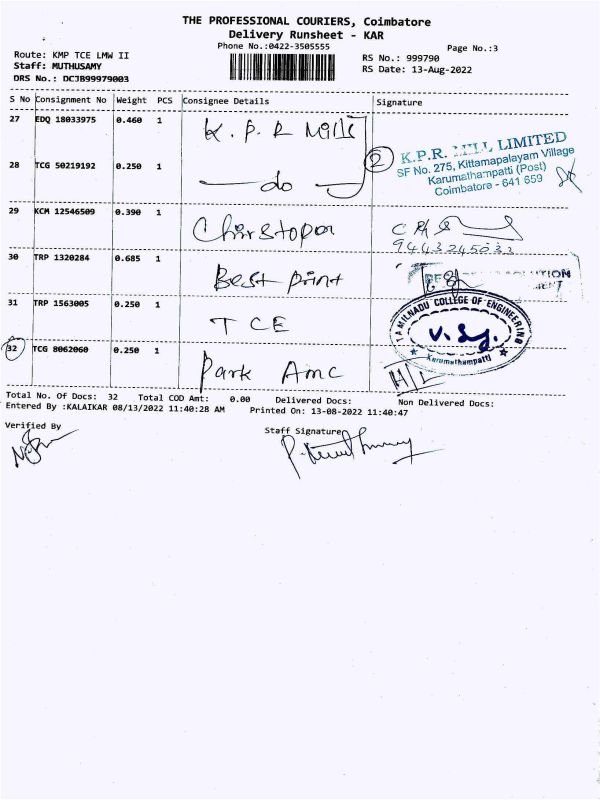 THE PROFESSIONAL COURIERS, Coimbatore
Delivery Runsheet - KAR
Phone No.:0422-3505555
Page No.:3
Route: KMP TCE LMW II
Staff: MUTHUSAMY
DRS No.: DCJB99979003
RS No.: 999790
RS Date: 13-Aug-2022
S No Consignment No Weight PCS Consignee Details Signature
27 EDQ 18033975 0.460 1 K.P.R Mills
28 TCG 50219192 0.250 1 do
2
K.P.R. MILL LIMITED
SF No. 275, Kittamapalayam Village
Karumathampatti (Post)
Coimbatore - 641 659
29 KCM 12546509 0.390 1 Chirstopar
9443245033
30 TRP 1320284 0.685 1 Best print
31 TRP 1563005 0.250 1 TCE
TAMILNADU COLLEGE OF ENGINEERING
Karumathampatti
32 TCG 8062060 0.250 1 Park Amc
Total No. Of Docs: 32 Total COD Amt: 0.00 Delivered Docs: Non Delivered Docs:
Entered By :KALAIKAR 08/13/2022 11:40:28 AM Printed On: 13-08-2022 11:40:47
Verified By
Staff Signature